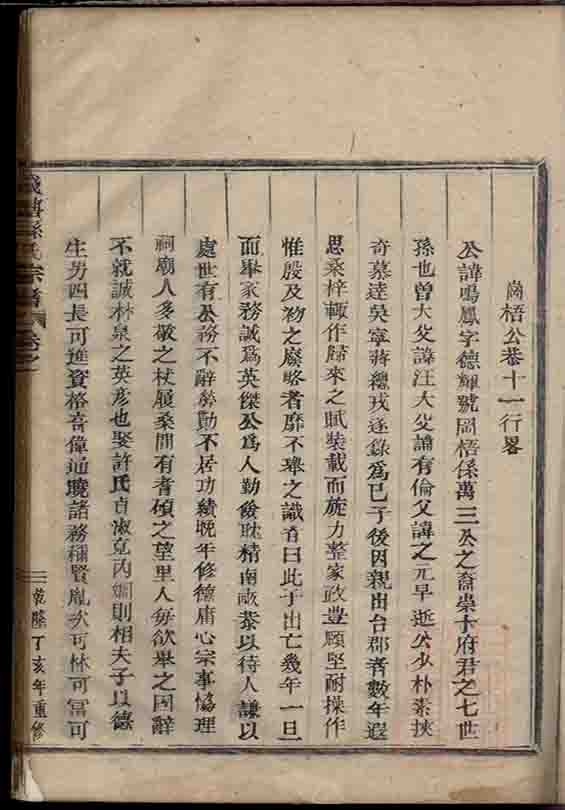 崗梧公恭十一行畧
公諱鳴鳳字德輝號岡梧係萬三公之裔崇十府君之七世
孫也曾大父諱汪大父諱有倫父諱之元早逝公少朴素挾
奇慕逵吳寧蔣總戎遂錄為已子後因親出台郡者數年遐
思桑梓輙作歸來之賦裝載而旋力整家政豊頤堅耐操作
惟殷及物之廢略者靡不舉之識者曰此子出亡幾年一旦
而舉家務誠為英傑公為人勤儉耽精南畝恭以待人謙以
處世有公務不辭勞勤不居功績晚年修德庸心宗事恊理
祠廟人多敬之杖履桑間有耆碩之望里人每欲舉之固辭
不就誠林泉之英彦也娶許氏貞淑克内嫺則相夫子以德
生男四長可進資格音偉通曉諸務稱賢胤次可林可富可
孫氏宗譜 卷之
二 乾隆丁亥年重修